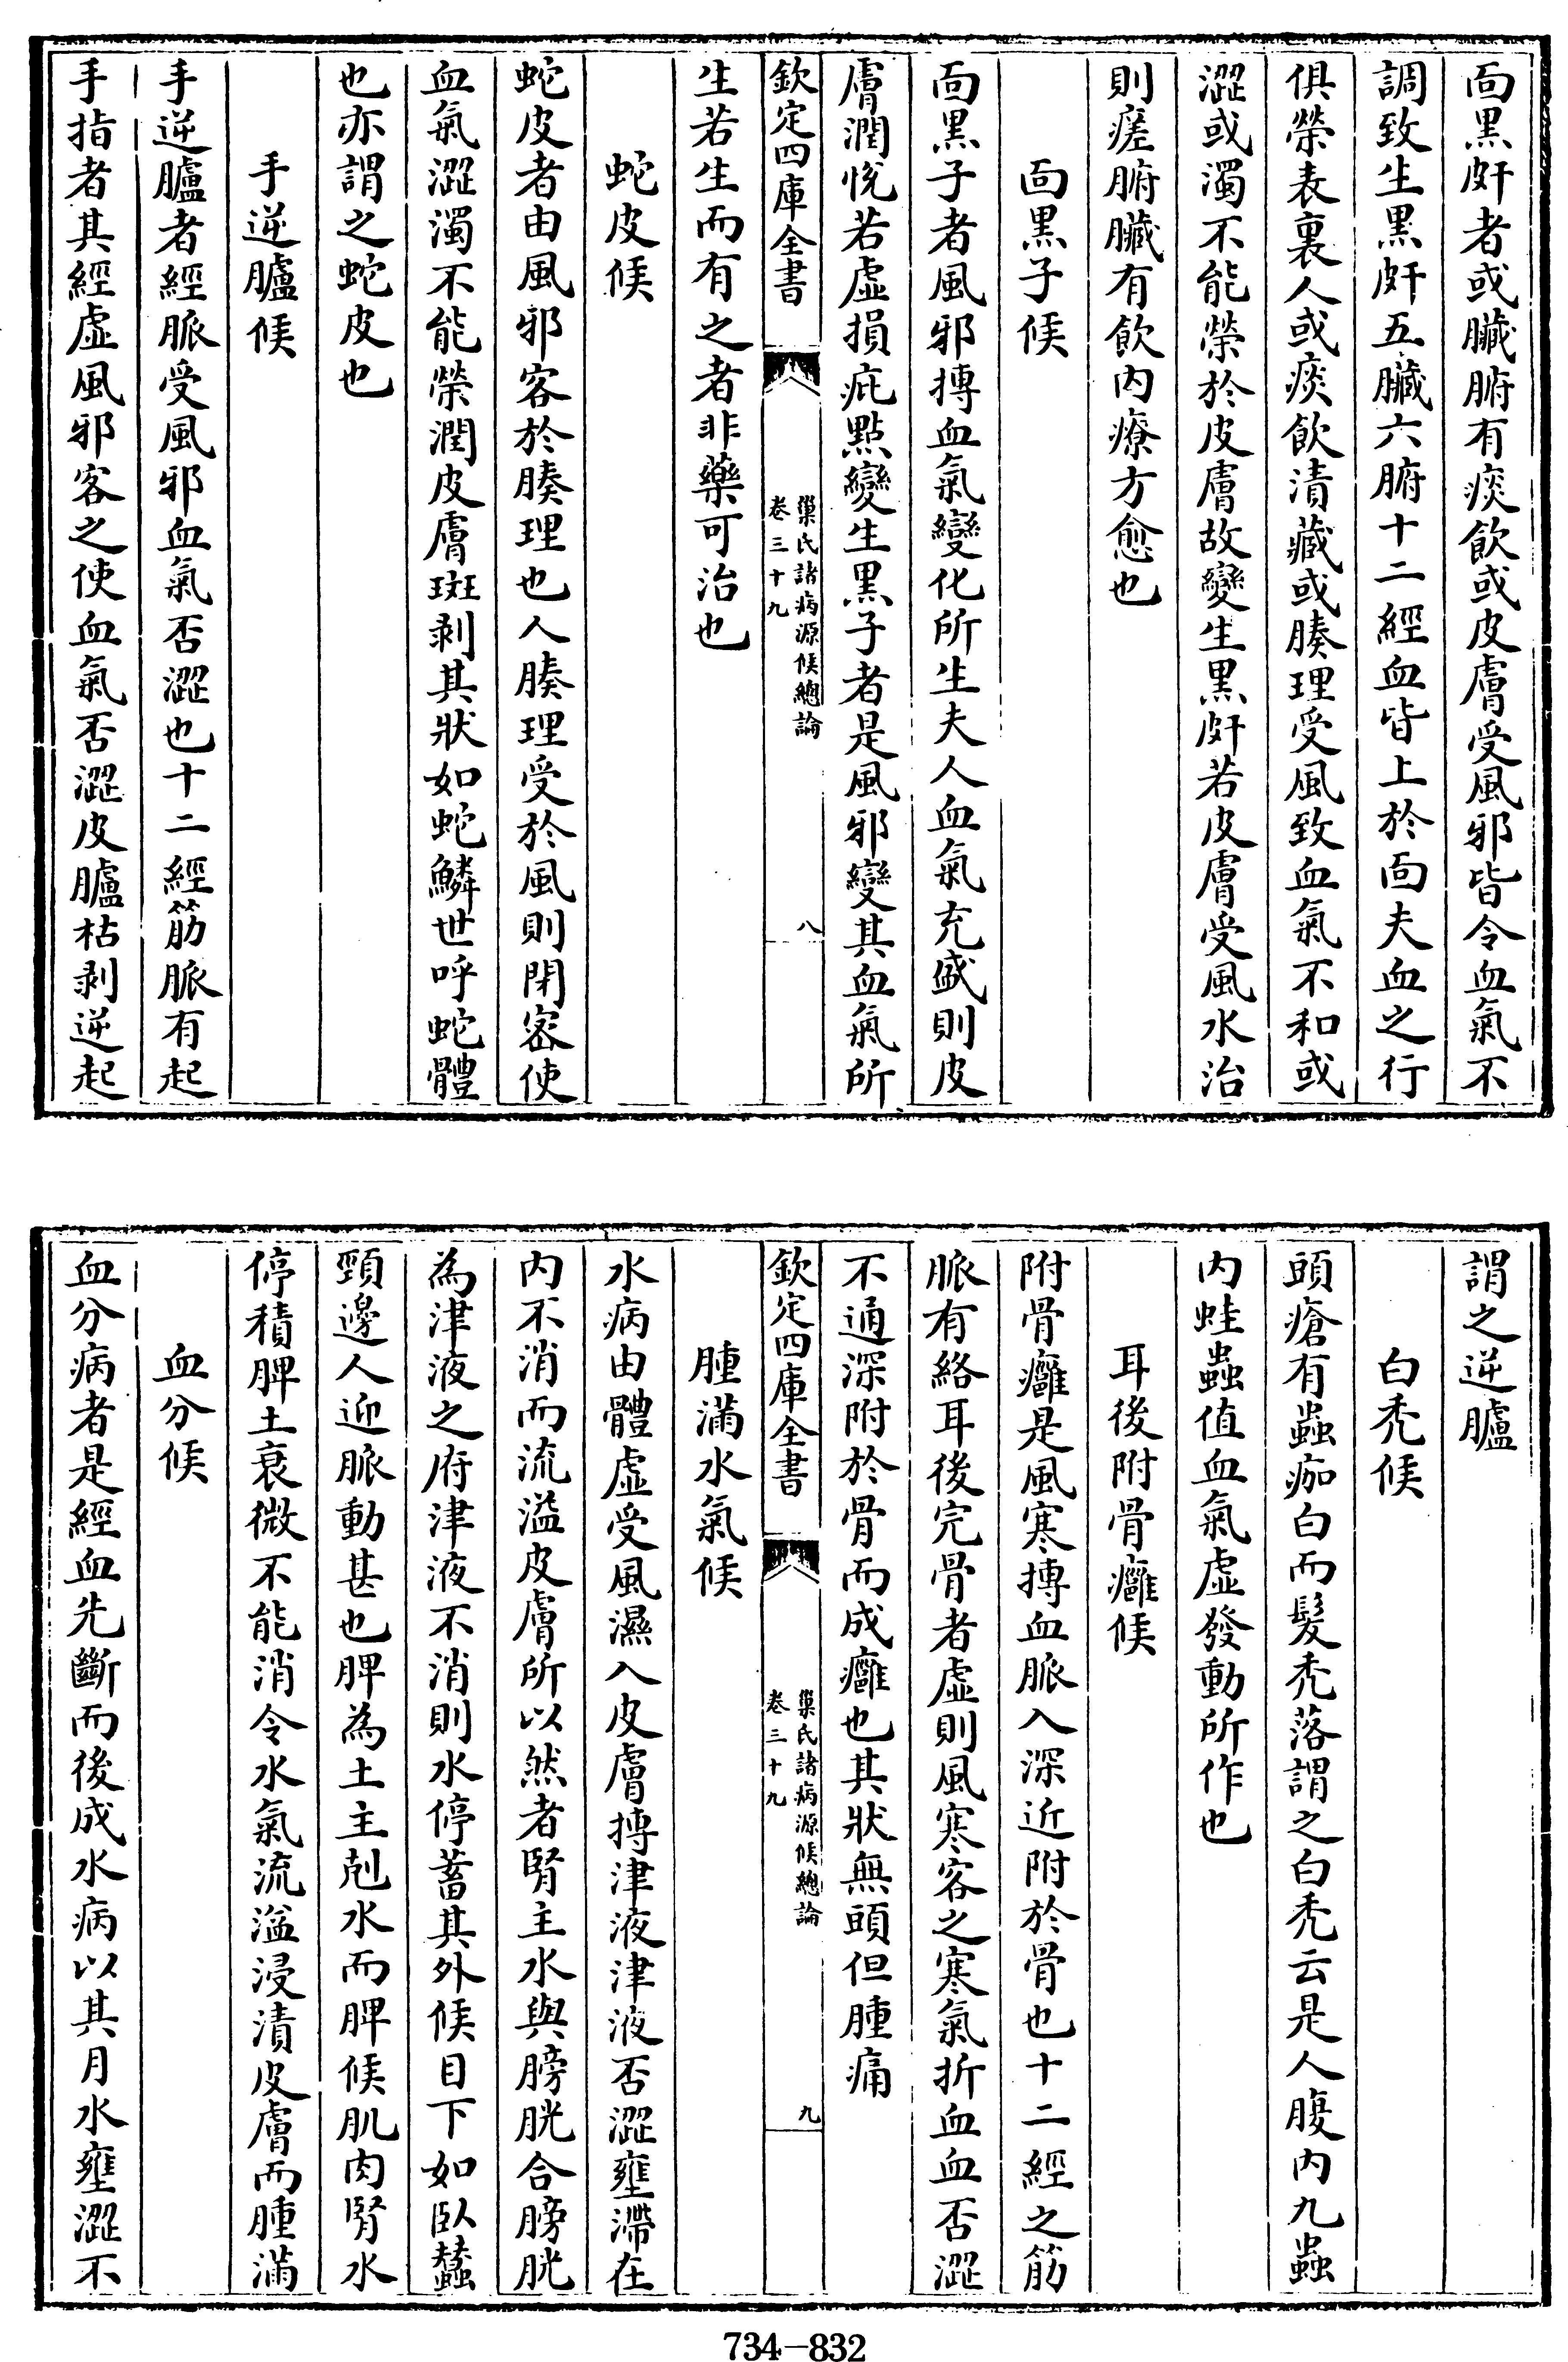 面黒皯者或臓腑有痰飲或皮膚受風邪皆令血氣不
調致生黒皯五臓六腑十二經血皆上於面夫血之行
俱榮表裏人或痰飲漬藏或腠理受風致血氣不和或
澀或濁不能榮於皮膚故變生黒皯若皮膚受風水治
則瘥腑臓有飲内療方愈也
面黒子候
面黒子者風邪搏血氣變化所生夫人血氣充盛則皮
膚潤悅若虛損疵點變生黒子者是風邪變其血氣所
欽定四庫全書
巢氏諸病源候總論
卷三十九
八
生若生而有之者非藥可治也
蛇皮候
蛇皮者由風邪客於腠理也人腠理受於風則閉宻使
血氣澀濁不能榮潤皮膚斑剥其狀如蛇鱗世呼蛇體
也亦謂之蛇皮也
手逆臚候
手逆臚者經脈受風邪血氣否澀也十二經筋脈有起
手指者其經虛風邪客之使血氣否澀皮臚枯剥逆起
謂之逆臚
白禿候
頭瘡有蟲痂白而髮禿落謂之白禿云是人腹内九蟲
内蛙蟲值血氣虛發動所作也
耳後附骨癰候
附骨癰是風寒搏血脈入深近附於骨也十二經之筋
脈有絡耳後完骨者虛則風寒客之寒氣折血血否澀
不通深附於骨而成癰也其狀無頭但腫痛
欽定四庫全書
巢氏諸病源候總論
卷三十九
九
腫滿水氣候
水病由體虛受風濕入皮膚搏津液津液否澀壅滯在
内不消而流溢皮膚所以然者腎主水與膀胱合膀胱
為津液之府津液不消則水停蓄其外候目下如臥蠶
頸邊人迎脈動甚也脾為土主剋水而脾候肌肉腎水
停積脾土衰微不能消令水氣流溢浸漬皮膚而腫滿
血分候
血分病者是經血先斷而後成水病以其月水壅澀不
734-832